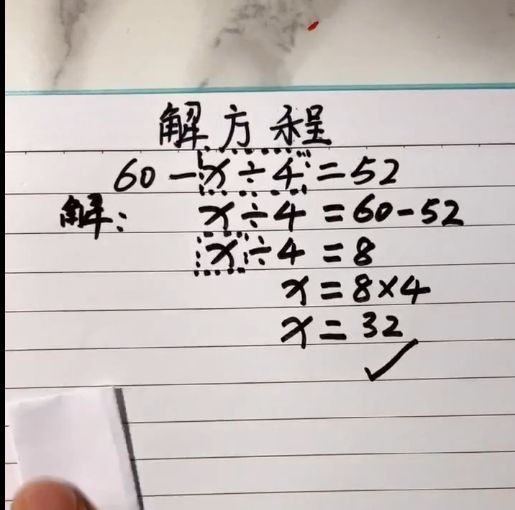 解方程
60-x÷4=52
解: x÷4=60-52
x÷4=8
x=8×4
x=32
✓